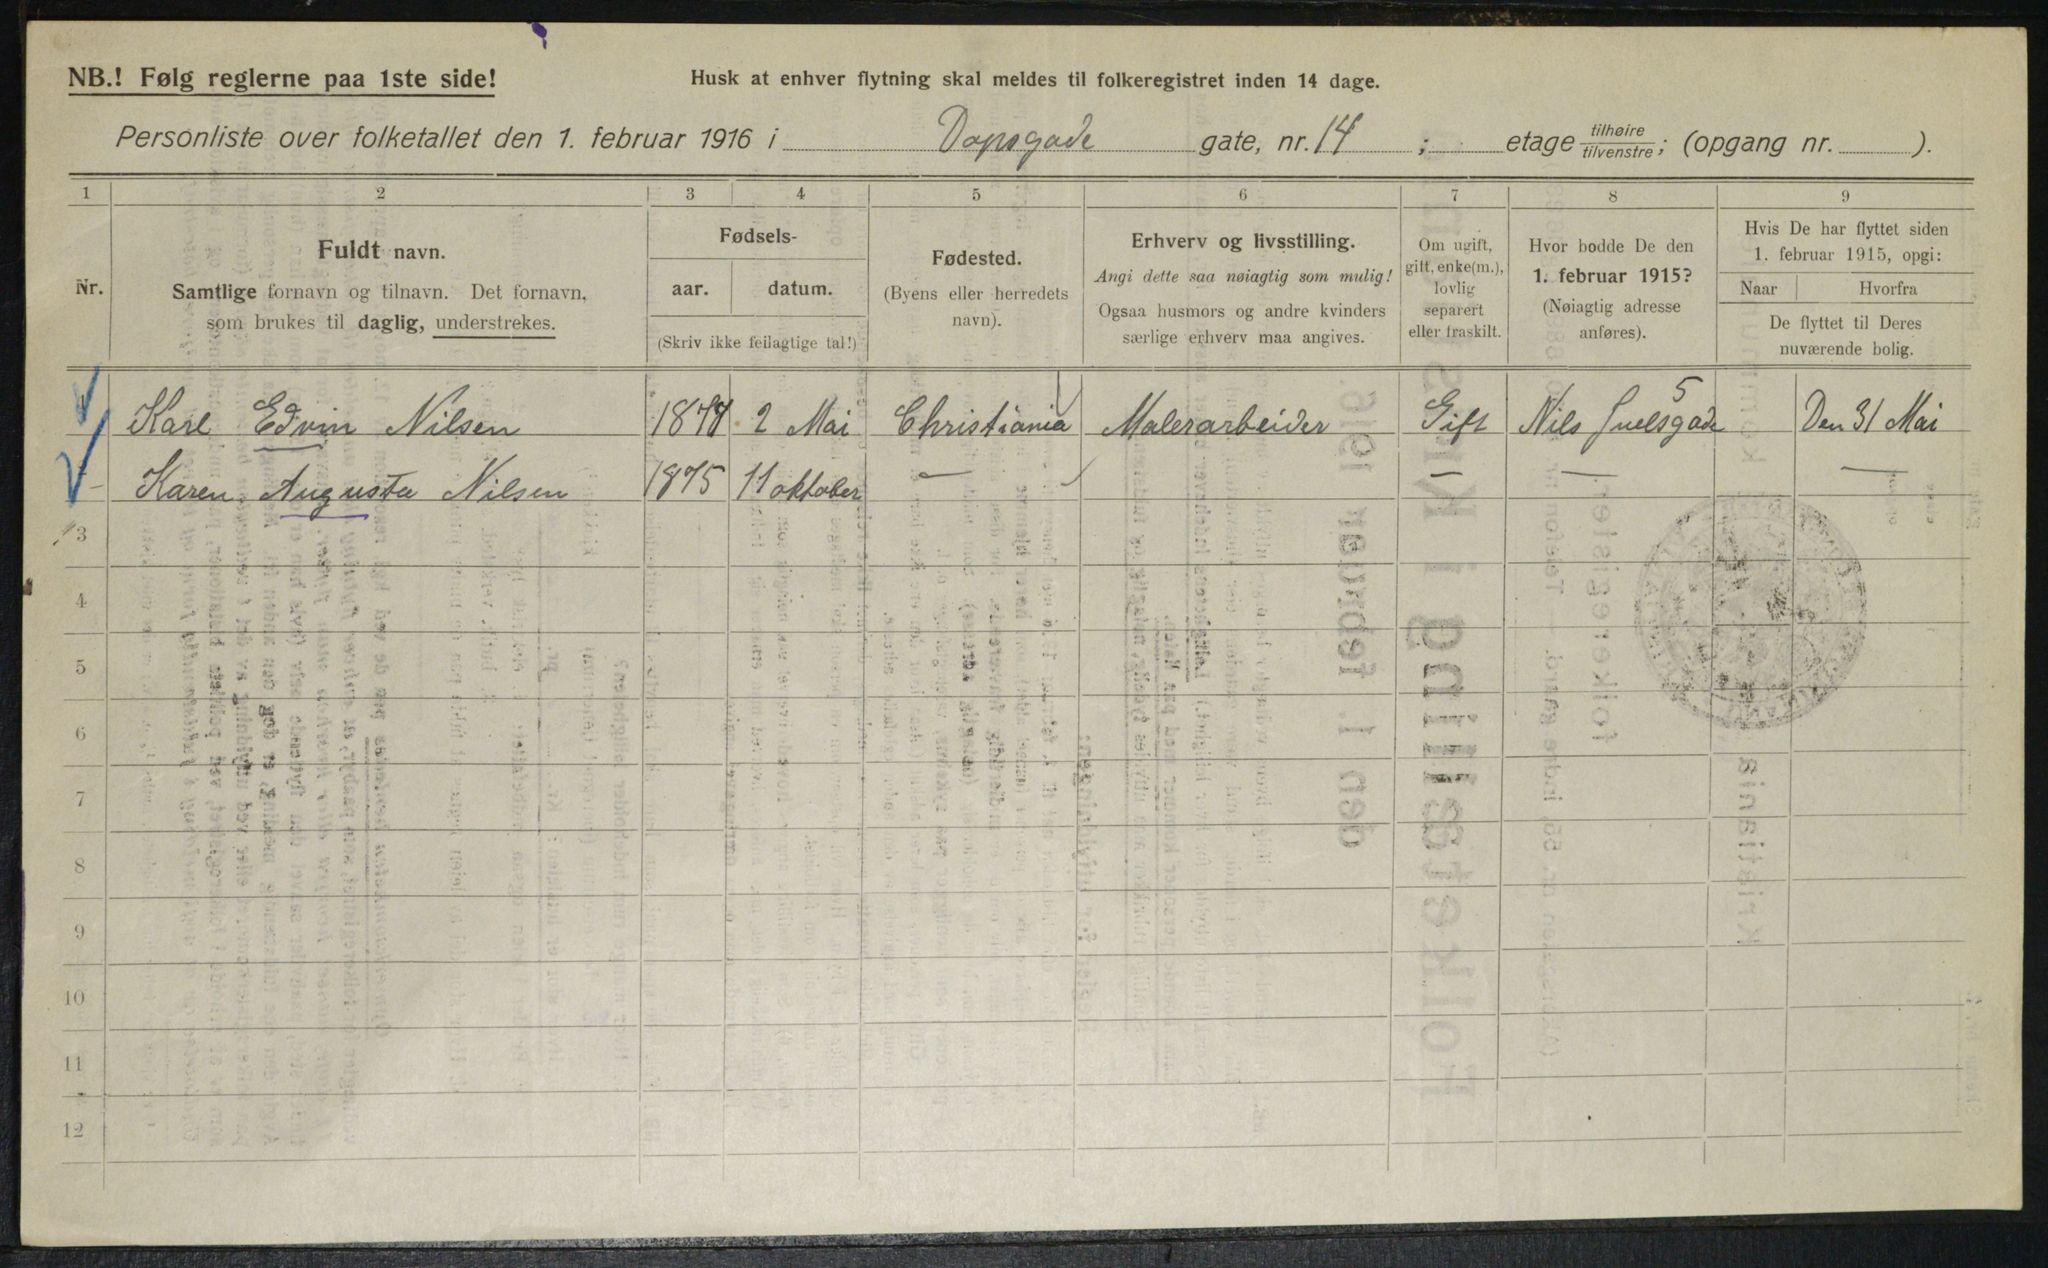 NB.! Følg reglerne paa 1ste side!
Husk at enhver flytning skal meldes til folkeregistret inden 14 dage.
Personliste over folketallet den 1. februar 1916 i Dopsgade gate, nr. 14 ; etage tilhøire/tilvenstre; (opgang nr. ).
1 2 3 4 5 6 7 8 9
Nr.
Fuldt navn.
Samtlige fornavn og tilnavn. Det fornavn,
som brukes til daglig, understrekes.
Fødsels-
aar. datum.
(Skriv ikke feilagtige tal!)
Fødested.
(Byens eller herredets
navn).
Erhverv og livsstilling.
Angi dette saa nøiagtig som mulig!
Ogsaa husmors og andre kvinders
særlige erhverv maa angives.
Om ugift,
gift, enke(m.),
lovlig
separert
eller fraskilt.
Hvor bodde De den
1. februar 1915?
(Nøiagtig adresse
anføres).
Hvis De har flyttet siden
1. februar 1915, opgi:
Naar Hvorfra
De flyttet til Deres
nuværende bolig.
Karl Edvin Nilsen 2 Mai Christiania Malerarbeider Gift Nils Juelsgade 5 Den 31 Mai
Karen Augusta Nilsen 1875 11 oktober — — — —
3
4
5
6
7
8
9
10
11
12